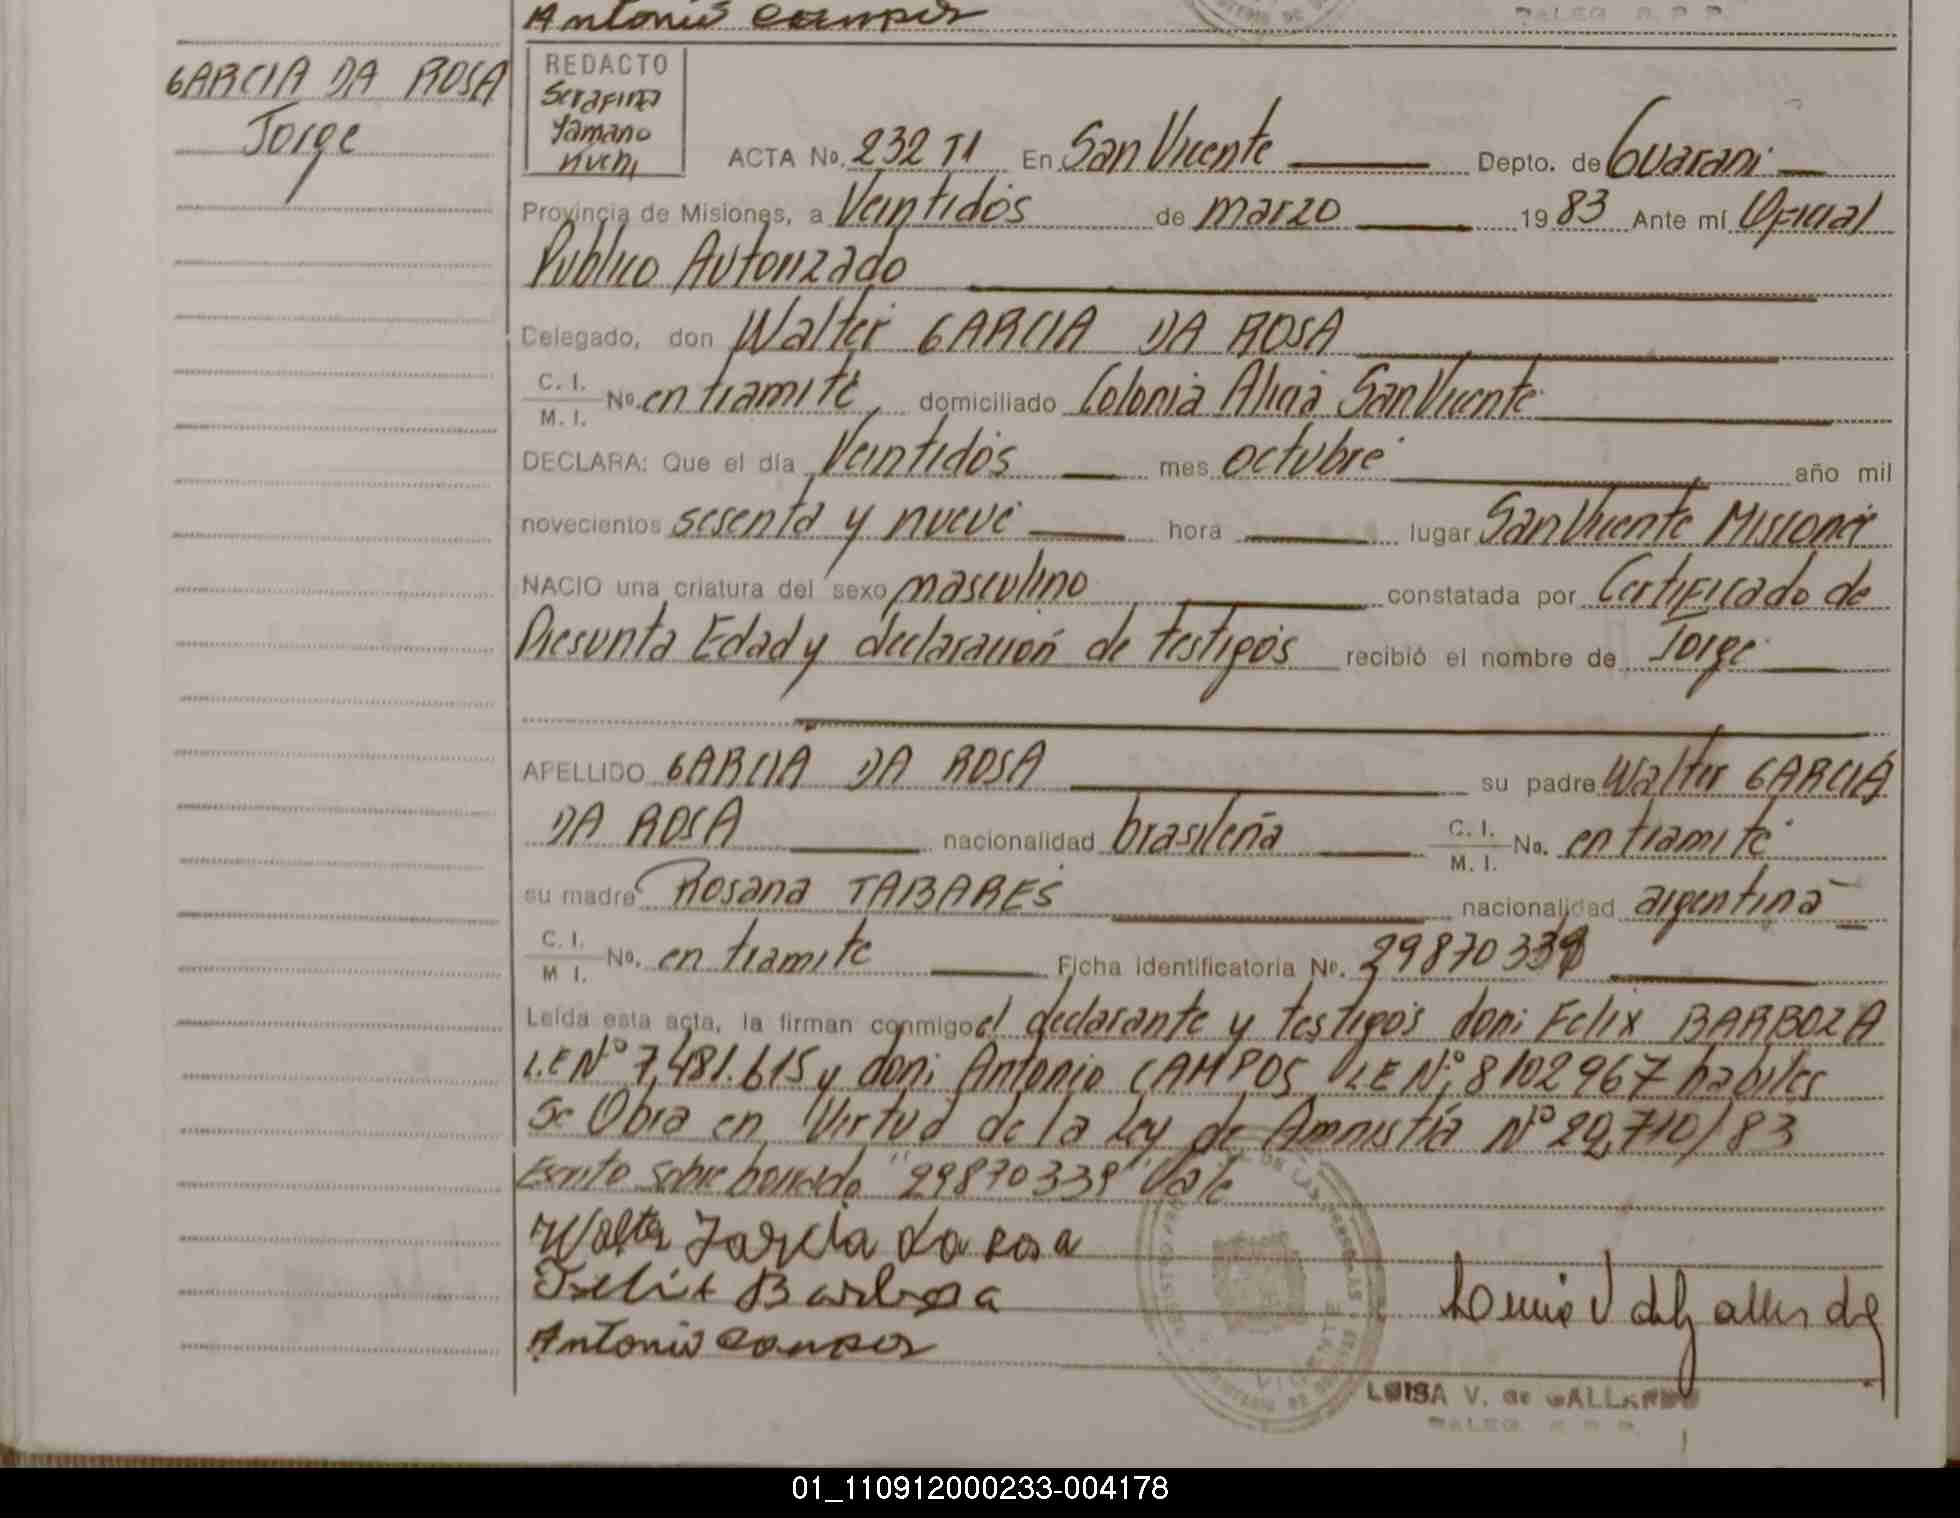 Antonio Campos
GARCIA DA ROSA
Jorge
REDACTO
Serafina
Yamano
ACTA No. 232 T1 En San Vicente Depto. de Guarani
Provincia de Misiones, a Veintidós de marzo 1983 Ante mí Oficial
Público Autorizado
Delegado, don Walter GARCIA DA ROSA
C. I.
M. I. No. en tramite, domiciliado Colonia Alicia San Vicente
DECLARA: Que el día Veintidós mes octubre año mil
novecientos sesenta y nueve hora lugar San Vicente Misiones
NACIO una criatura del sexo masculino constatada por Certificado de
Presunta Edad y declaración de testigos recibió el nombre de Jorge
APELLIDO GARCIA DA ROSA su padre Walter GARCIA
DA ROSA nacionalidad brasileña C. I.
M. I. No. en tramite
su madre Rosana TABARES nacionalidad argentina
C. I.
M I. No. en tramite Ficha identificatoria No. 29870339
Leída esta acta, la firman conmigo el declarante y testigos don: Felix BARBOZA
L.E Nº 7,481.615 y don: Antonio CAMPOS L E Nº: 8102967 habiles
Se Obra en Virtud de la Ley de Amnistía Nº 20,710/83
Escrito sobre borrado "29870339" Vale
Walter Garcia da Rosa
Felix Barboza
Antonio Campos
LUISA V. de GALLARDO
01_110912000233-004178